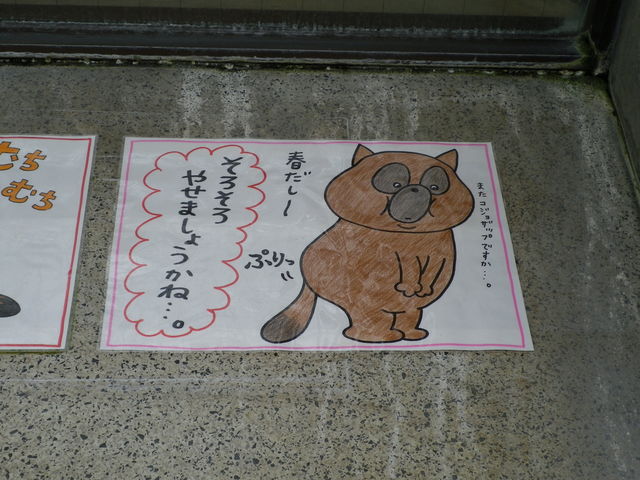 むち
むち
春だしー
そろそろ
やせましょ
うかね…。
ぷりっ
またコジョザップですか…。